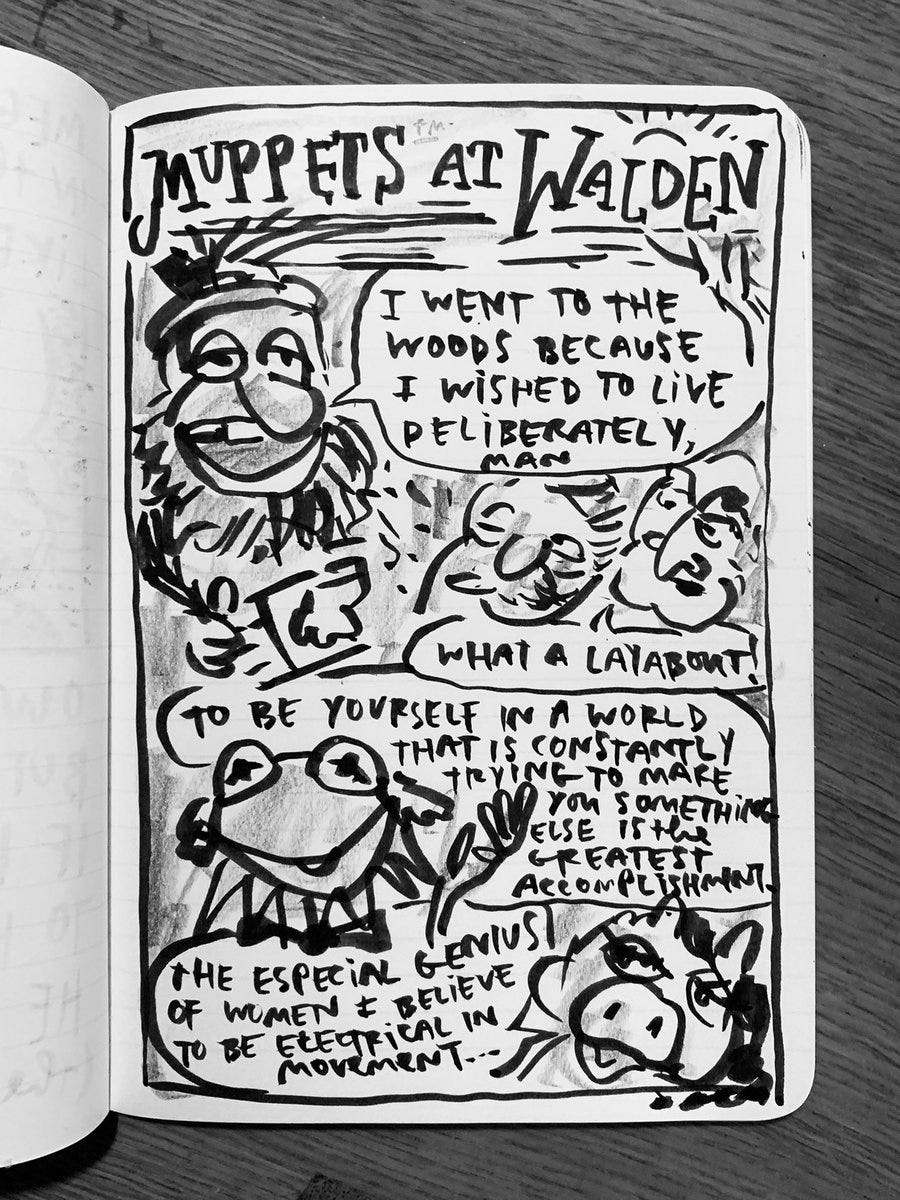 MUPPETS AT WALDEN
TM
I WENT TO THE
WOODS BECAUSE
I WISHED TO LIVE
DELIBERATELY,
MAN
WHAT A LAYABOUT!
TO BE YOURSELF IN A WORLD
THAT IS CONSTANTLY
TRYING TO MAKE
YOU SOMETHING
ELSE IS the
GREATEST
ACCOMPLISHMENT.
THE ESPECIAL GENIUS
OF WOMEN I BELIEVE
TO BE ELECTRICAL IN
MOVEMENT...